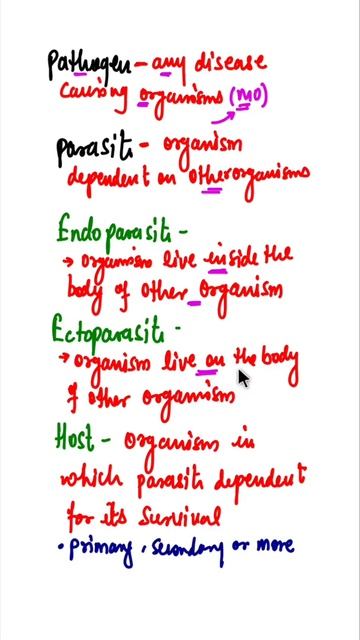 Pathogen - any disease
causing organisms (MO)
Parasite - organism
dependent on other organisms
Endoparasite -
→ organism live inside the
body of other organism
Ectoparasite -
→ organism live on the body
of other organism
Host - organism in
which parasite dependent
for its survival
• primary, secondary or more